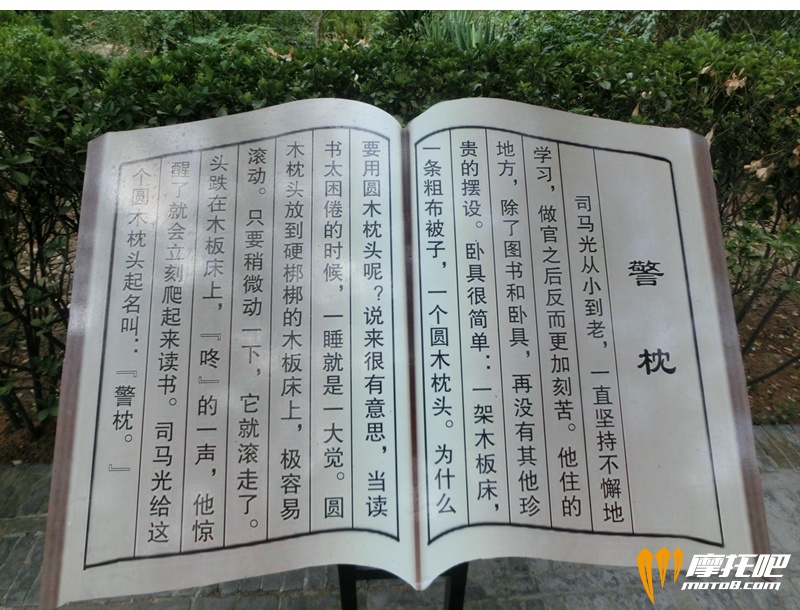 警枕
司马光从小到老，一直坚持不懈地
学习，做官之后反而更加刻苦。他住的
地方，除了图书和卧具，再没有其他珍
贵的摆设。卧具很简单：一架木板床，
一条粗布被子，一个圆木枕头。为什么
要用圆木枕头呢？说来很有意思，当读
书太困倦的时候，一睡就是一大觉。圆
木枕头放到硬梆梆的木板床上，极容易
滚动。只要稍微动一下，它就滚走了。
头跌在木板床上，『咚』的一声，他惊
醒了就会立刻爬起来读书。司马光给这
个圆木枕头起名叫：『警枕。』
摩托吧
moto8.com